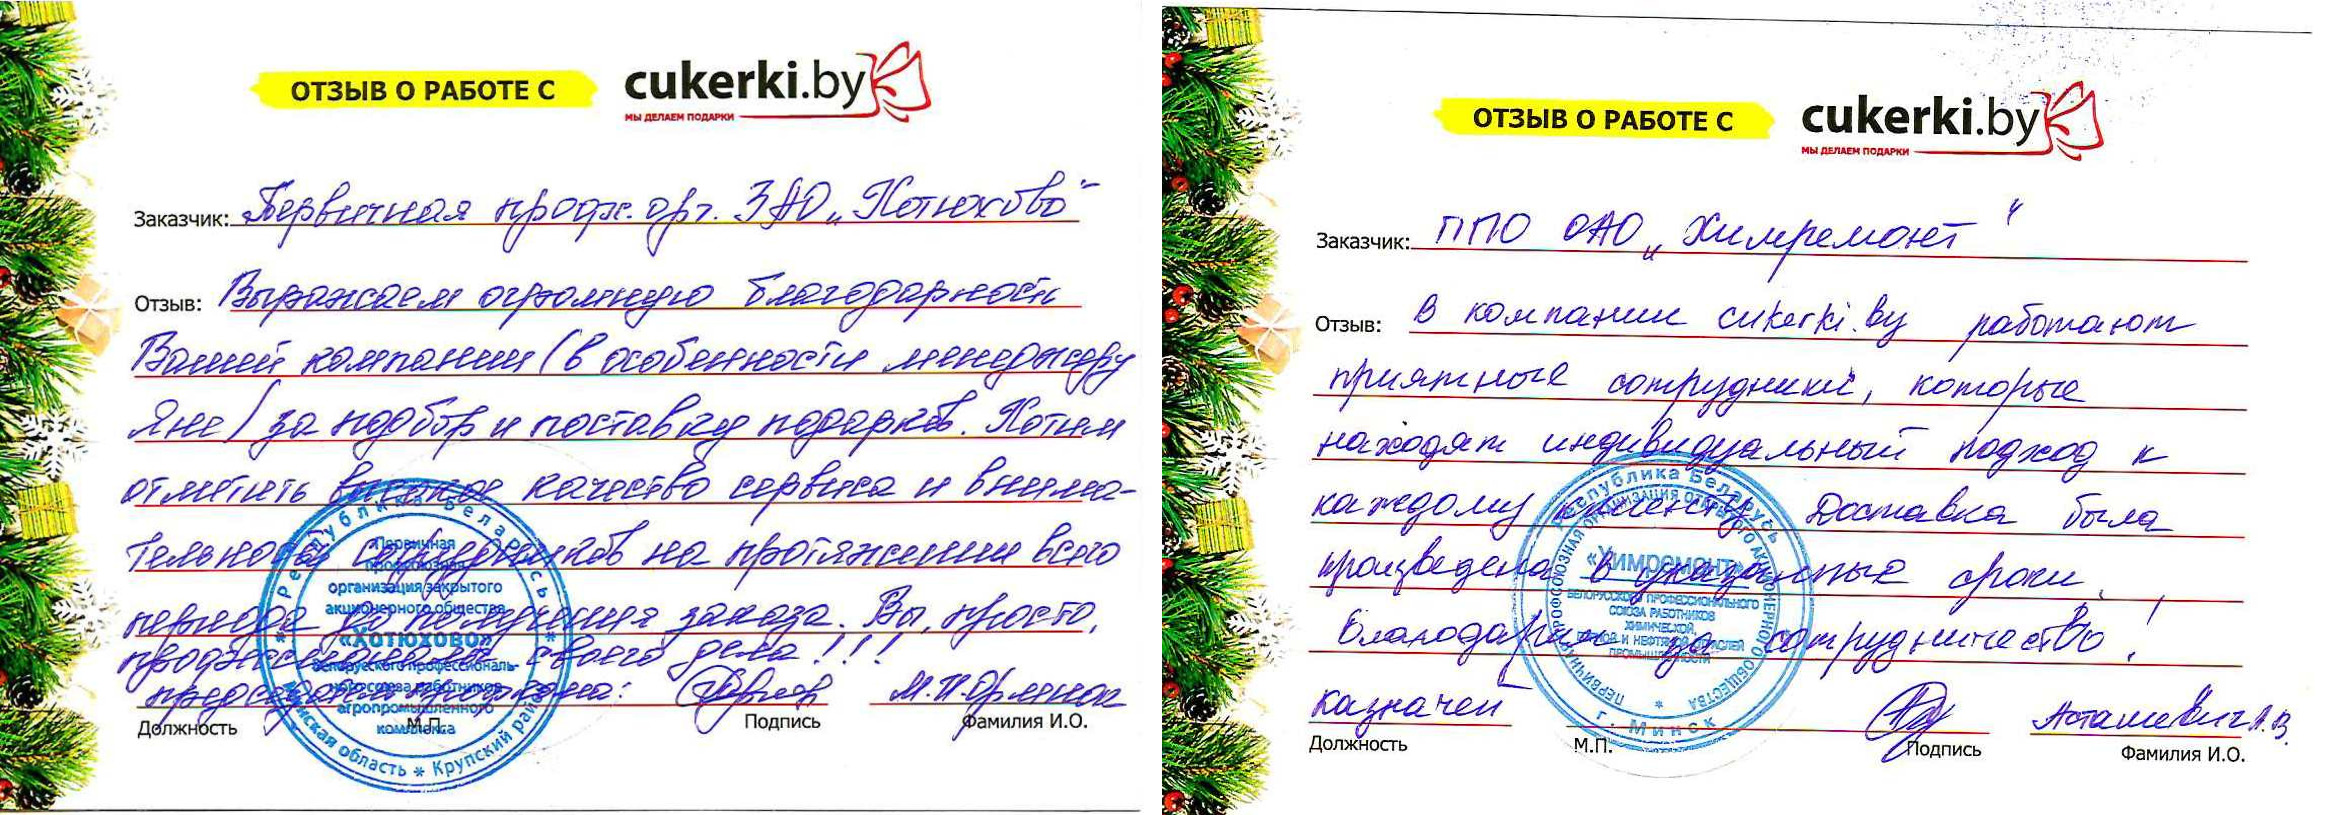 ОТЗЫВ О РАБОТЕ С cukerki.by
МЫ ДЕЛАЕМ ПОДАРКИ
Заказчик: Первичная профс. орг. ЗАО „Хотюхово"
Отзыв: Выражаем огромную благодарность
Вашей компании (в особенности менеджеру
Яне) за подбор и поставку подарков. Хотим
отметить высокое качество сервиса и внима-
тельность сотрудников на протяжении всего
периода до получения заказа. Вы, просто,
профессионалы своего дела!!!
председатель профкома:
Должность М.П. Подпись Фамилия И.О.
Республика Беларусь
Минская область * Крупский район
Первичная
профсоюзная
организация закрытого
акционерного общества
«Хотюхово»
Белорусского профессиональ-
ного союза работников
агропромышленного
комплекса
ОТЗЫВ О РАБОТЕ С cukerki.by
МЫ ДЕЛАЕМ ПОДАРКИ
Заказчик: ППО ОАО „Химремонт"
Отзыв: В компании cukerki.by работают
приятные сотрудники, которые
находят индивидуальный подход к
каждому клиенту. Доставка была
произведена в указанные сроки.
Благодарим за сотрудничество!
казначей Асташевич Л.В.
Должность М.П. Подпись Фамилия И.О.
Республика Беларусь
г. Минск
ПЕРВИЧНАЯ ПРОФСОЮЗНАЯ ОРГАНИЗАЦИЯ ОТКРЫТОГО АКЦИОНЕРНОГО ОБЩЕСТВА
«Химремонт»
БЕЛОРУССКОГО ПРОФЕССИОНАЛЬНОГО
СОЮЗА РАБОТНИКОВ
ХИМИЧЕСКОЙ,
ГОРНОЙ И НЕФТЯНОЙ ОТРАСЛЕЙ
ПРОМЫШЛЕННОСТИ